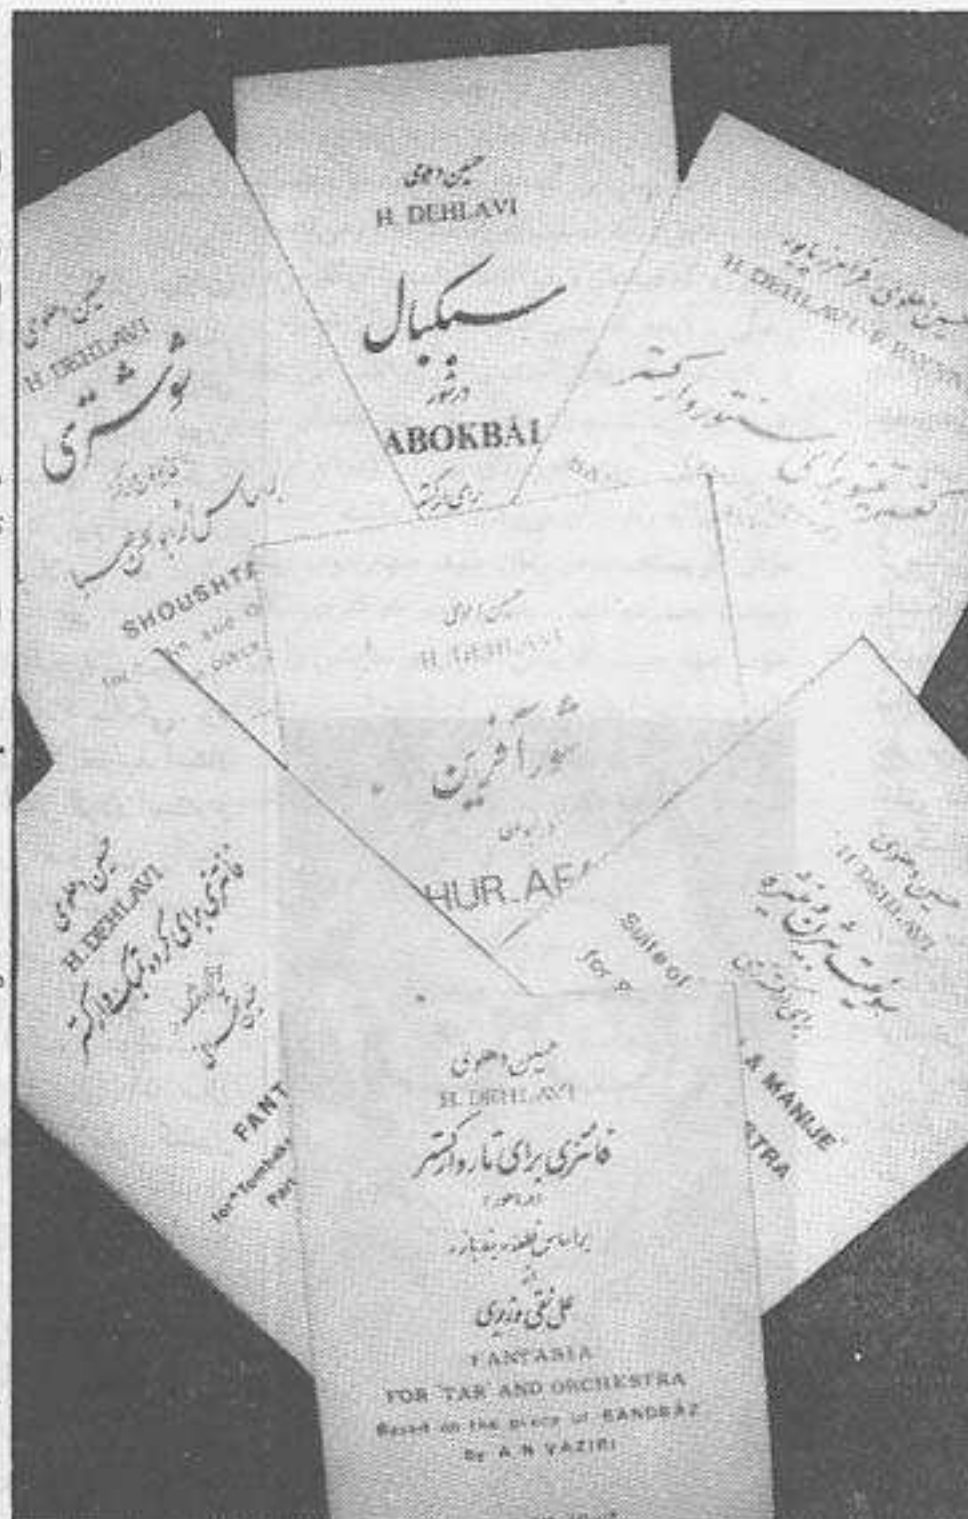 حسین دهلوی
H. DEHLAVI
سبکبال
در شور
ABOKBAL
برای ارکستر
حسین دهلوی
H. DEHLAVI
شوشتری
بر اساس اثر ابوالحسن صبا
SHOUSHTA
for
حسین دهلوی فرامرز پایور
H. DEHLAVI
کنسرتینو برای سنتور و ارکستر
حسین دهلوی
H. DEHLAVI
شورآفرین
HUR.AF
حسین دهلوی
H. DEHLAVI
فانتزی برای گروه تمبک و ارکستر
FANT
for "Tombak
حسین دهلوی
H. DEHLAVI
سوئیت بیژن و منیژه
برای ارکستر
Suite of
for
& MANIJE
STRA
حسین دهلوی
H. DEHLAVI
فانتزی برای تار و ارکستر
بر اساس قطعه بندباز
از
علی نقی وزیری
FANTASIA
FOR TAR AND ORCHESTRA
Based on the piece of BANDBAZ
By A N VAZIRI